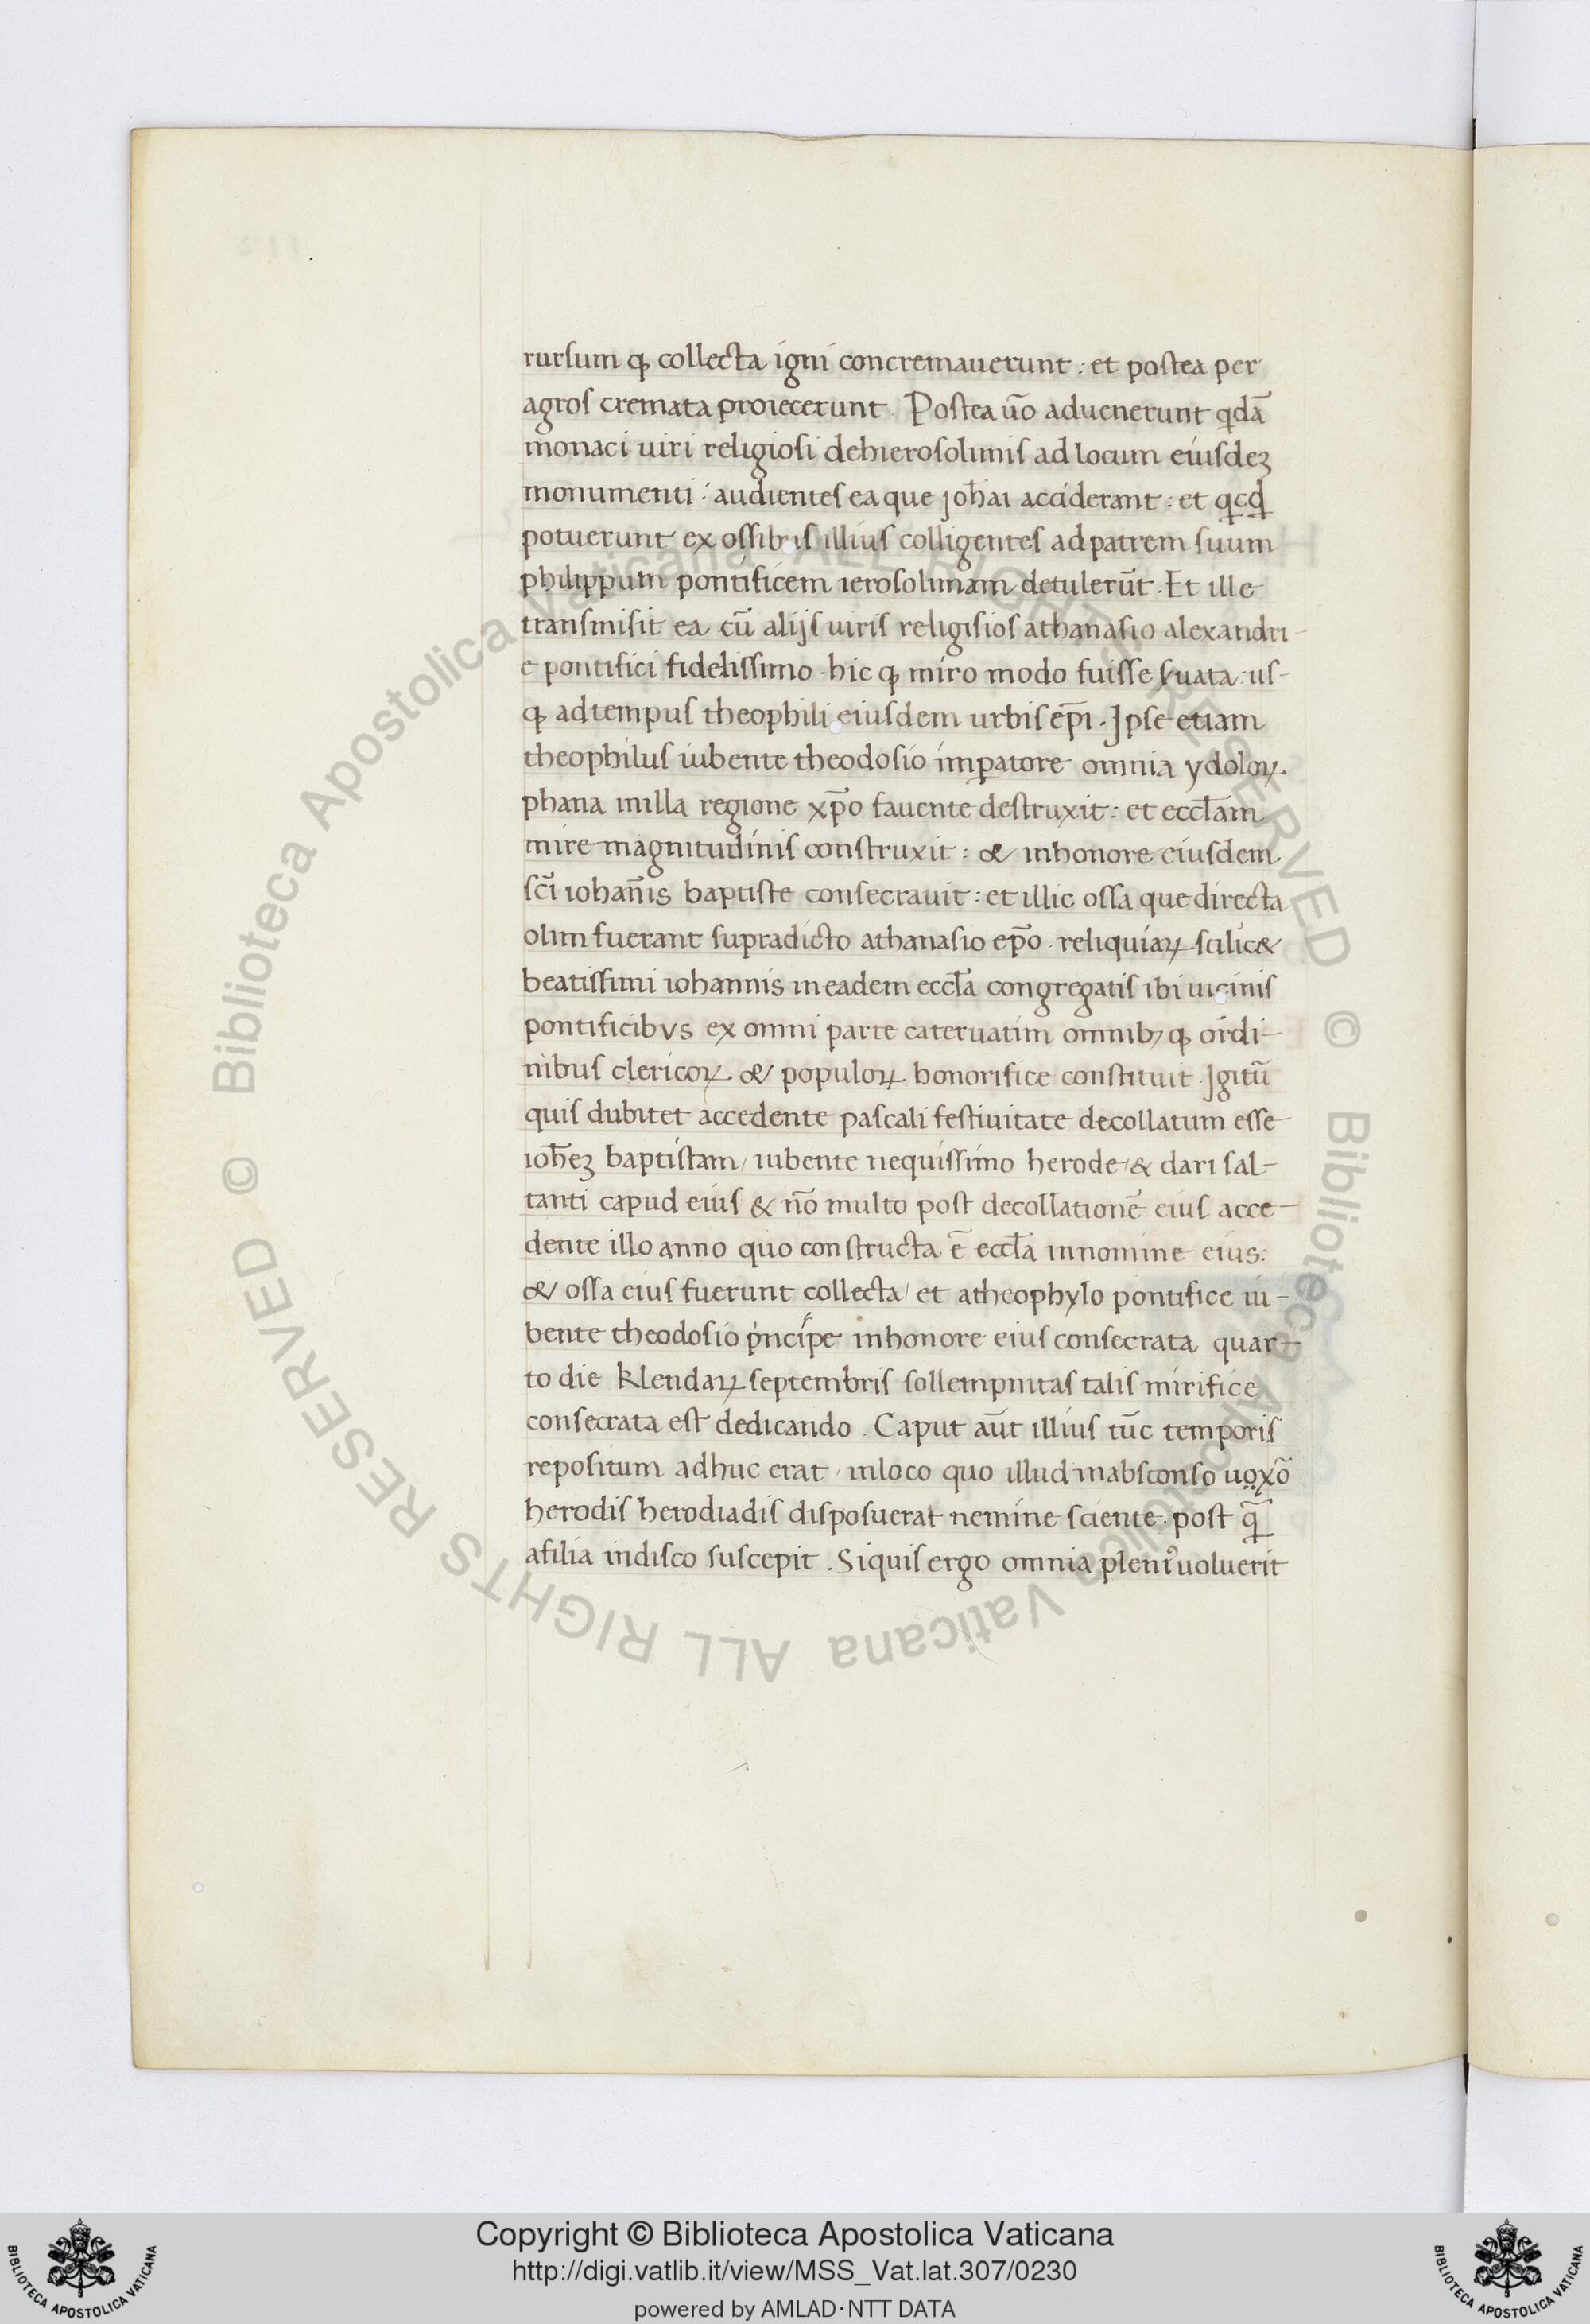 rursum q; collecta igni concremauerunt : et postea per
agros cremata proiecerunt . Postea ūo aduenerunt qdā
monaci uiri religiosi dehierosolimis ad locum eiusdeʒ
monumenti : audientes ea que joh̄ai acciderant : et qcqd
potuerunt ex ossibus illius colligentes ad patrem suum
philippum pontificem ierosolimam detulerūt . Et ille
transmisit ea cū alijs uiris religisios athanasio alexandri-
e pontifici fidelissimo . hic q; miro modo fuisse ẜuata : us-
q; ad tempus theophili eiusdem urbis ep̄i . Jpse etiam
theophilus iubente theodosio imꝑatore omnia ydoloꝝ
phana inilla regione xp̄o fauente destruxit : et eccl̄am
mire magnitudinis construxit : & inhonore eiusdem
sc̄i iohan̄is baptiste consecrauit : et illic ossa que directa
olim fuerant supradicto athanasio ep̄o . reliquiaꝝ scilic&
beatissimi iohannis in eadem eccl̄a congregatis ibi uicinis
pontificibus ex omni parte cateruatim omnib; q; ordi-
nibus clericoꝝ & populoꝝ honorifice constituit . Jgitū
quis dubitet accedente pascali festiuitate decollatum esse
ioh̄eʒ baptistam / iubente nequissimo herode / & dari sal-
tanti capud eius & nō multo post decollationē eius acce-
dente illo anno quo constructa ē eccl̄a innomine eius :
& ossa eius fuerunt collecta / et atheophylo pontifice iu-
bente theodosio pncipe inhonore eius consecrata quar-
to die klendaꝝ septembris sollempnitas talis mirifice
consecrata est dedicando . Caput aūt illius tūc temporis
repositum adhuc erat / inloco quo illud inabsconso uoxō
herodis herodiadis disposuerat nemine sciente . post q̄
afilia indisco suscepit . Siquis ergo omnia pleniꝰ uoluerit
Copyright © Biblioteca Apostolica Vaticana
http://digi.vatlib.it/view/MSS_Vat.lat.307/0230
powered by AMLAD·NTT DATA
BIBLIOTECA APOSTOLICA VATICANA
BIBLIOTECA APOSTOLICA VATICANA
© Biblioteca Apostolica Vaticana ALL RIGHTS RESERVED © Biblioteca Apostolica Vaticana ALL RIGHTS RESERVED